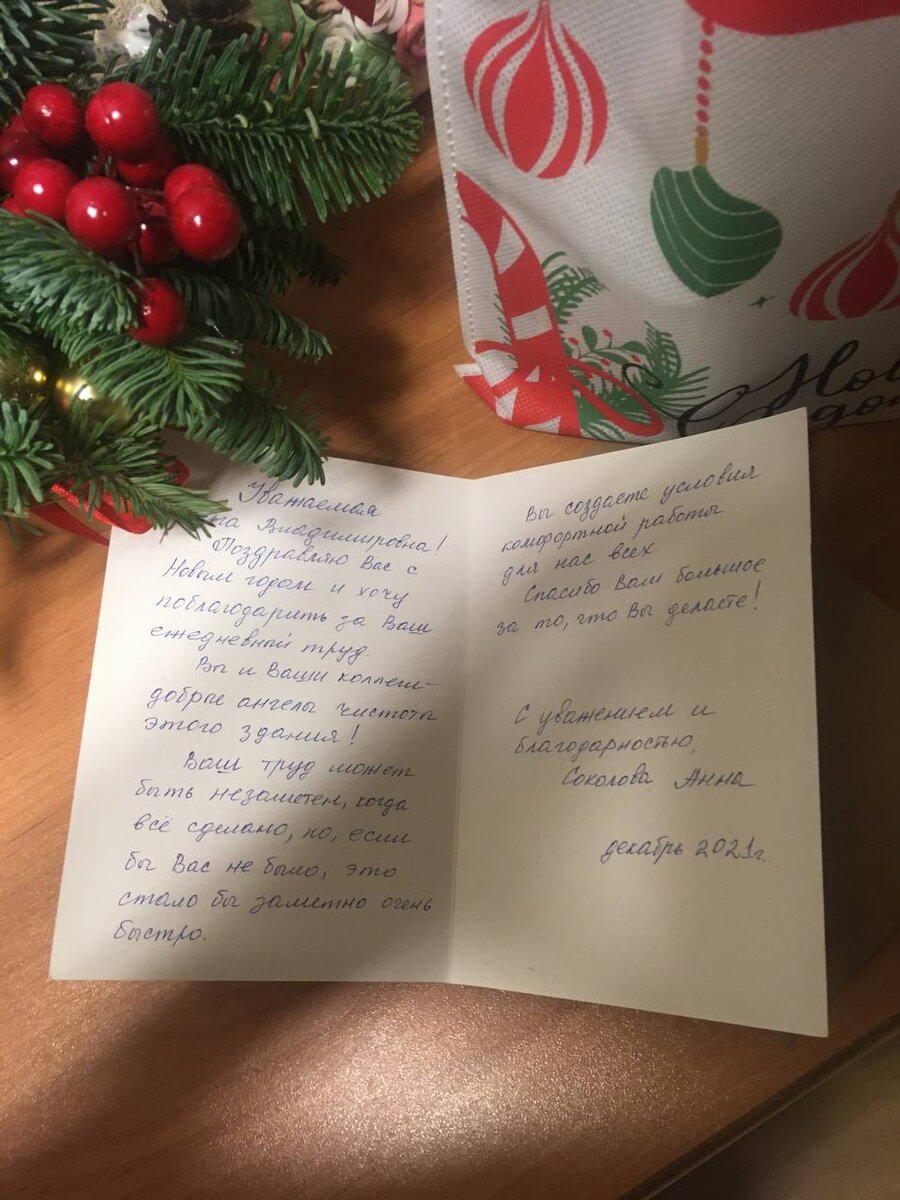 Уважаемая
на Владимировна!
Поздравляю Вас с
Новым годом и хочу
поблагодарить за Ваш
ежедневный труд.
Вы и Ваши коллеги –
добрые ангелы чистоты
этого здания!
Ваш труд может
быть незаметен, когда
всё сделано, но, если
бы Вас не было, это
стало бы заметно очень
быстро.
Вы создаете условия
комфортной работы
для нас всех.
Спасибо Вам большое
за то, что Вы делаете!
С уважением и
благодарностью,
Соколова Анна
декабрь 2021г.